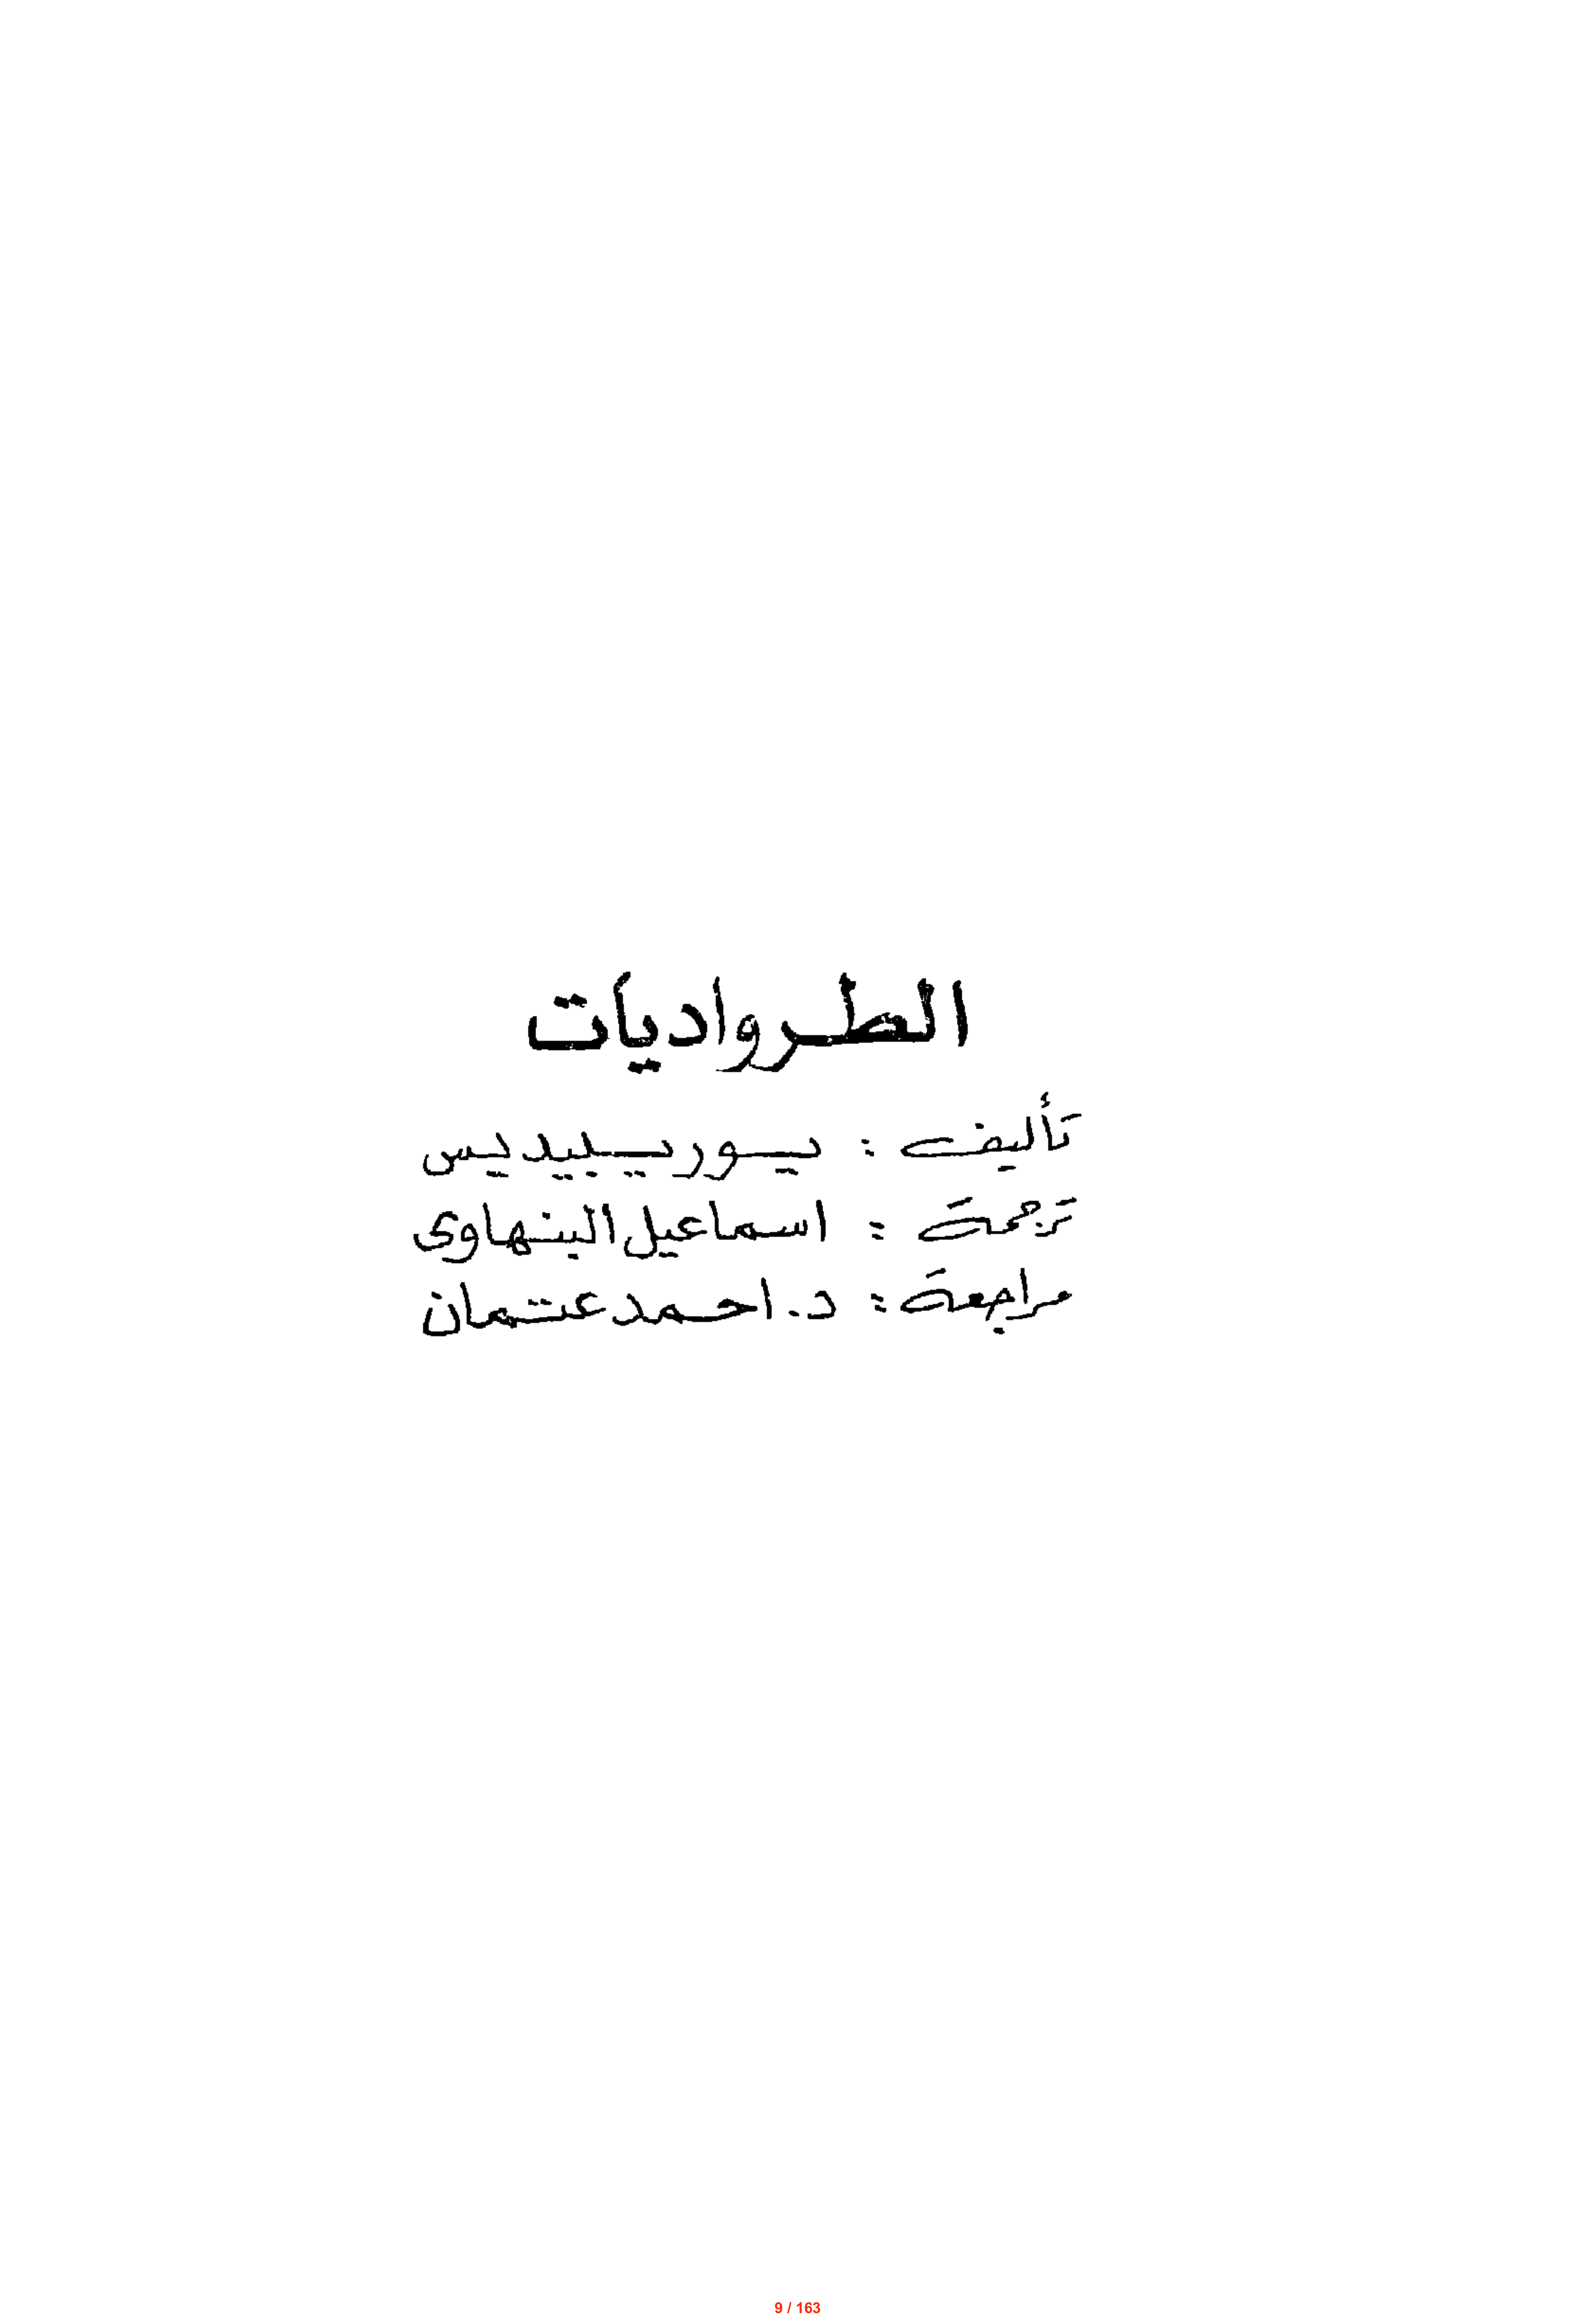 الطرواديات
تأليف : يوريبيديس
ترجمة : اسماعيل البنهاوى
مراجعة : د. احمد عتمان
9 / 163